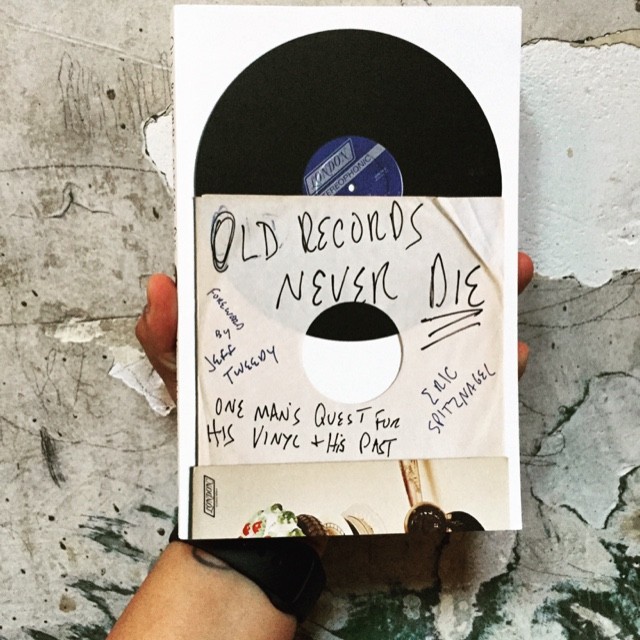 LONDON
STEREOPHONIC
OLD RECORDS
NEVER DIE
FOREWORD
BY
JEFF
TWEEDY
ERIC
SPITZNAGEL
ONE MAN'S QUEST FOR
HIS VINYL + HIS PAST
LONDON